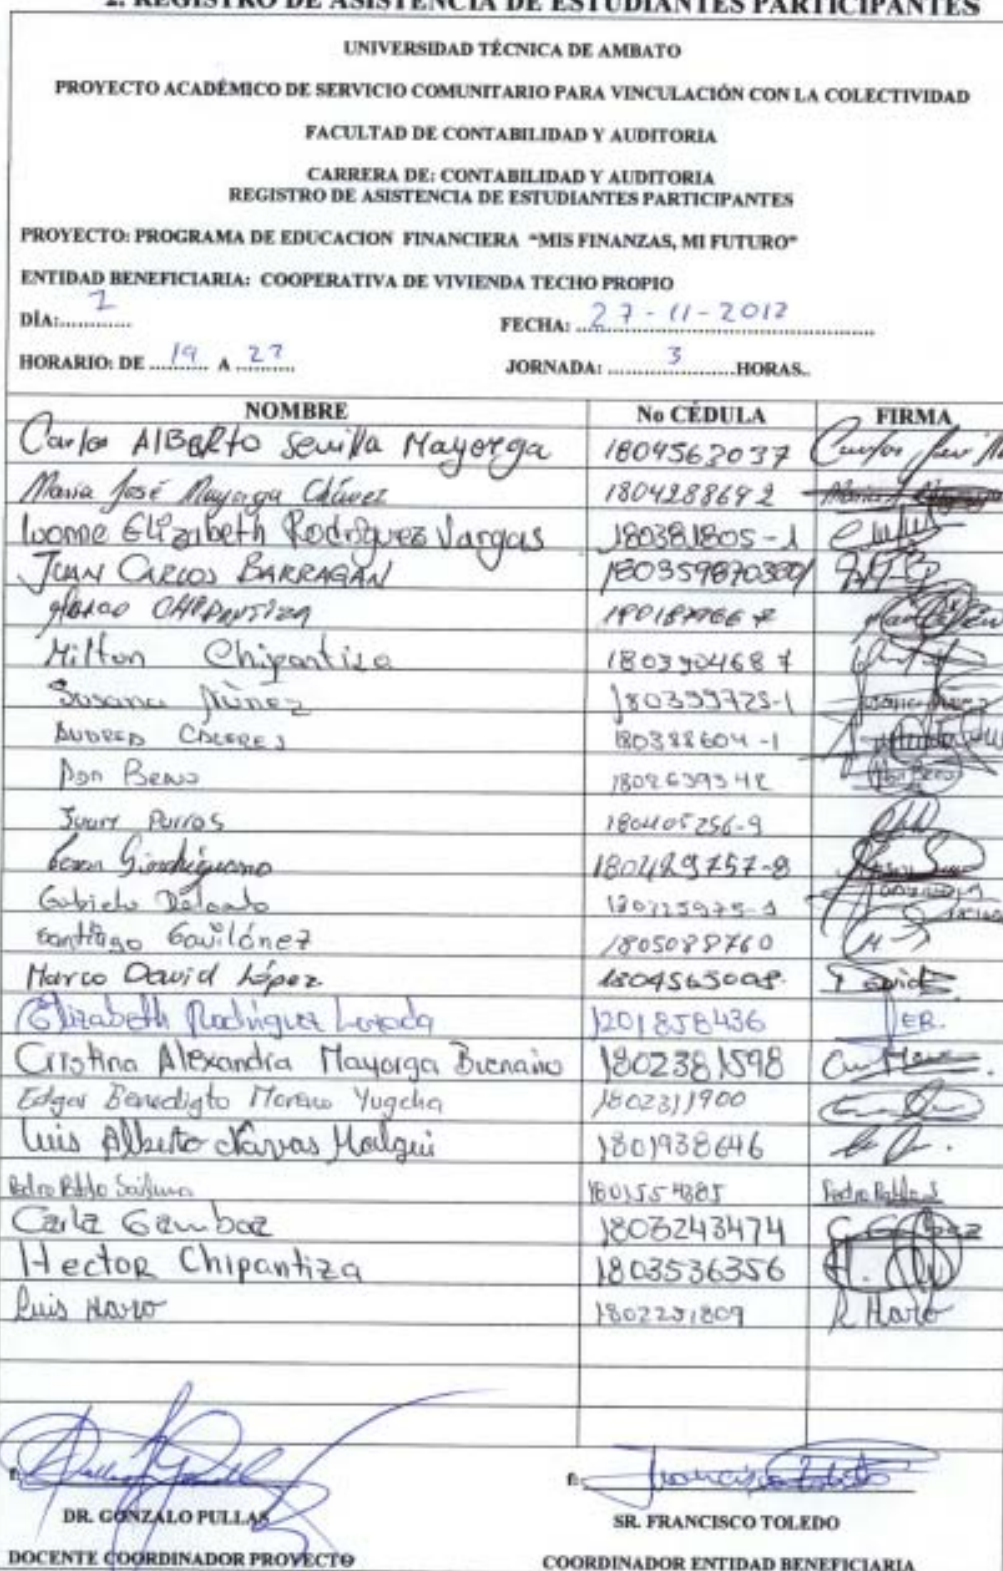 2. REGISTRO DE ASISTENCIA DE ESTUDIANTES PARTICIPANTES
UNIVERSIDAD TÉCNICA DE AMBATO
PROYECTO ACADÉMICO DE SERVICIO COMUNITARIO PARA VINCULACIÓN CON LA COLECTIVIDAD
FACULTAD DE CONTABILIDAD Y AUDITORIA
CARRERA DE: CONTABILIDAD Y AUDITORIA
REGISTRO DE ASISTENCIA DE ESTUDIANTES PARTICIPANTES
PROYECTO: PROGRAMA DE EDUCACION FINANCIERA "MIS FINANZAS, MI FUTURO"
ENTIDAD BENEFICIARIA: COOPERATIVA DE VIVIENDA TECHO PROPIO
DÍA:............. FECHA: 27-11-2012
HORARIO: DE 19 A 22 JORNADA: 3 HORAS..
NOMBRE No CÉDULA FIRMA
Carlos AlBeRto Sevilla Mayorga 1804562037
Maria José Mayorga Chávez 1804288692
Ivonne Elizabeth Rodríguez Vargas 180381805-1
JUAN CARLOS BARRAGÁN
CHIPANTIZA
Milton Chipantiza 1803904687
Susana Núñez 180399725-1 Susana Núñez
CACERES 180388604-1
Don Beno
180405256-9
180429757-8
Gabriela Delgado
Santiago Gavilánez 1805088760
Marco David López 1804565008 David
Elizabeth Rodríguez Lozada 1201858436 ER.
Cristina Alexandra Mayorga Buenaño 1802381598
Edgar Benedigto Moreno Yugcha 1802311900
Luis Alberto Navas Malqui 1801938646
Pedro Pablo 1801554385 Pedro Pablo
Carla Gamboa 1803243474
Hector Chipantiza 1803536356
Luis Haro 1802251809 L Haro
f: f: Francisco Toledo
DR. GONZALO PULLAS SR. FRANCISCO TOLEDO
DOCENTE COORDINADOR PROYECTO COORDINADOR ENTIDAD BENEFICIARIA